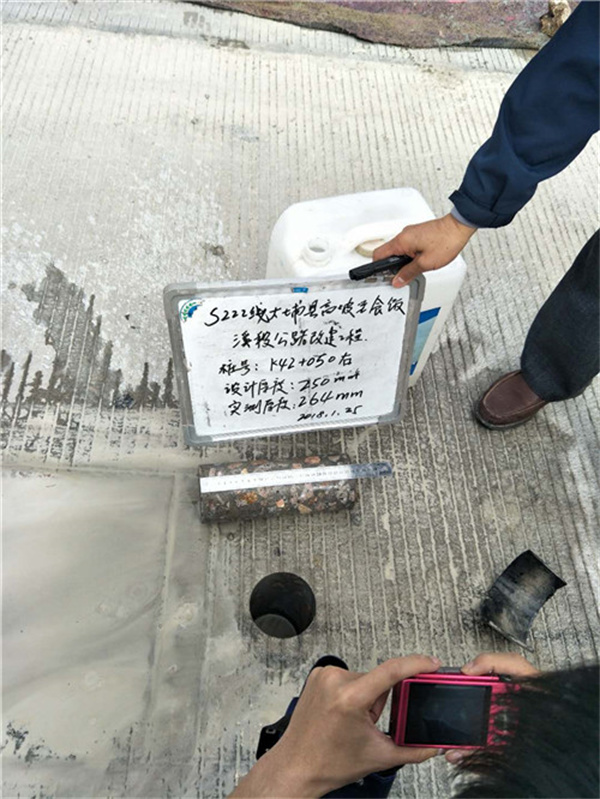 S222线大埔县高陂至食饭
溪段公路改建工程.
桩号: K42+050右
设计厚度: 250mm
实测厚度: 264mm
2018.1.25